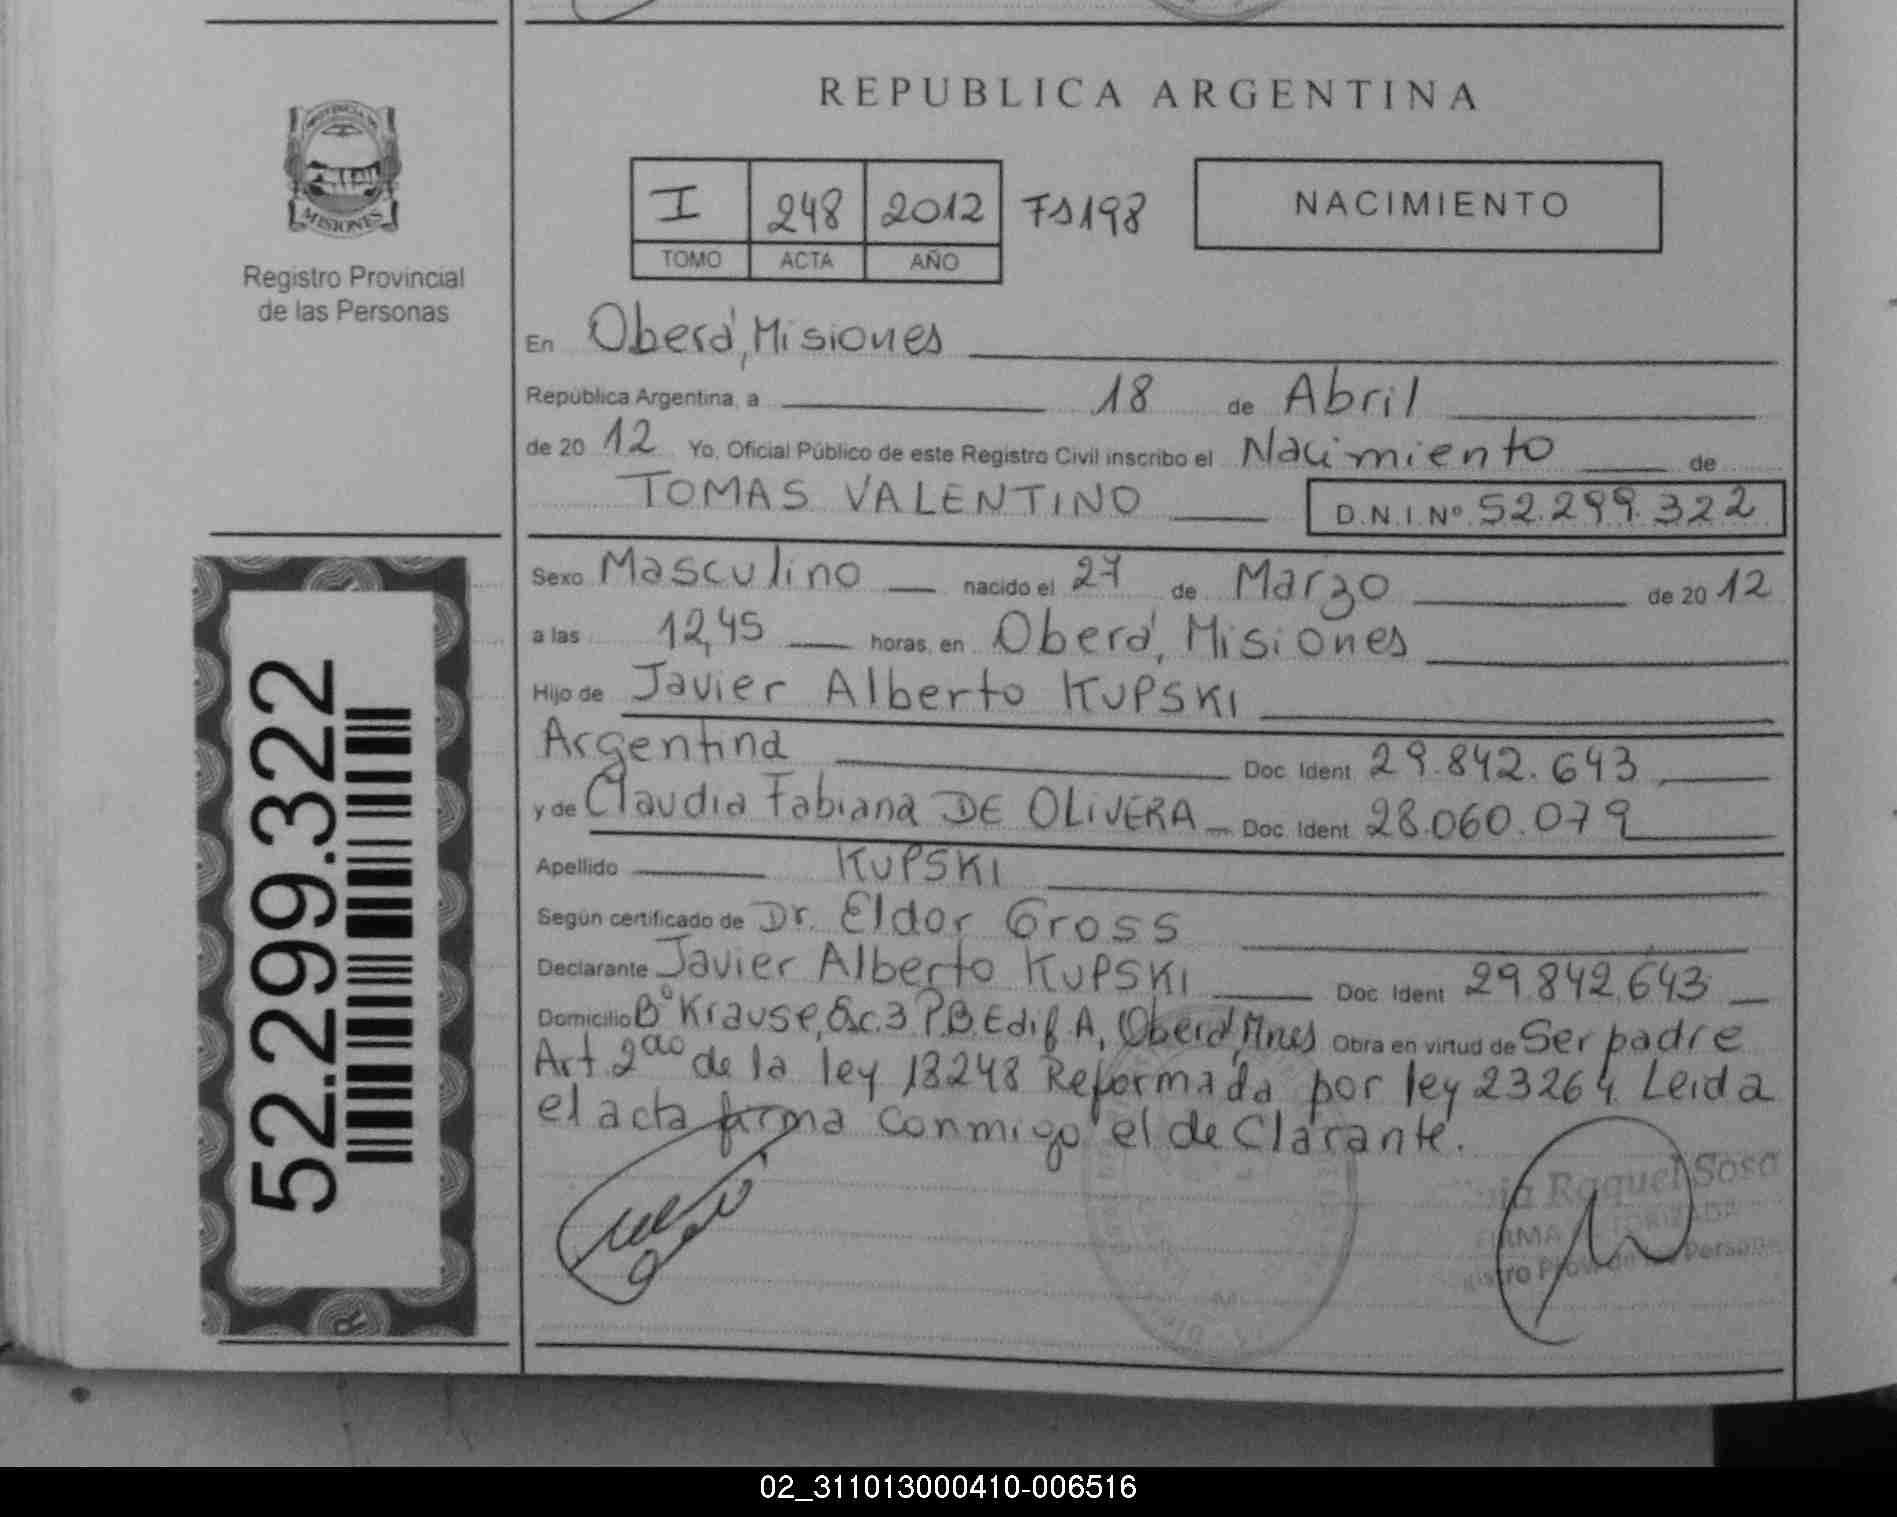 REPUBLICA ARGENTINA
PROVINCIA DE
MISIONES
Registro Provincial
de las Personas
I 248 2012 Fs198
TOMO ACTA AÑO
NACIMIENTO
En Oberá, Misiones
República Argentina, a 18 de Abril
de 20 12 Yo, Oficial Público de este Registro Civil inscribo el Nacimiento de
TOMAS VALENTINO D.N.I.Nº 52.299.322
Sexo Masculino nacido el 27 de Marzo de 20 12
a las 12,45 horas, en Oberá, Misiones
Hijo de Javier Alberto KUPSKI
Argentina Doc. Ident 29.842.643
y de Claudia Fabiana DE OLIVERA Doc. Ident 28.060.079
Apellido KUPSKI
Según certificado de Dr. Eldor Gross
Declarante Javier Alberto KUPSKI Doc. Ident 29.842.643
Domicilio Bº Krause, Esc.3 P.B. Edif. A, Oberá, Mnes Obra en virtud de Ser padre
Art. 2do de la ley 18248 Reformada por ley 23264. Leida
el acta firma conmigo el declarante.
Raquel Sosa
FIRMA AUTORIZADA
52.299.322
R
02_311013000410-006516